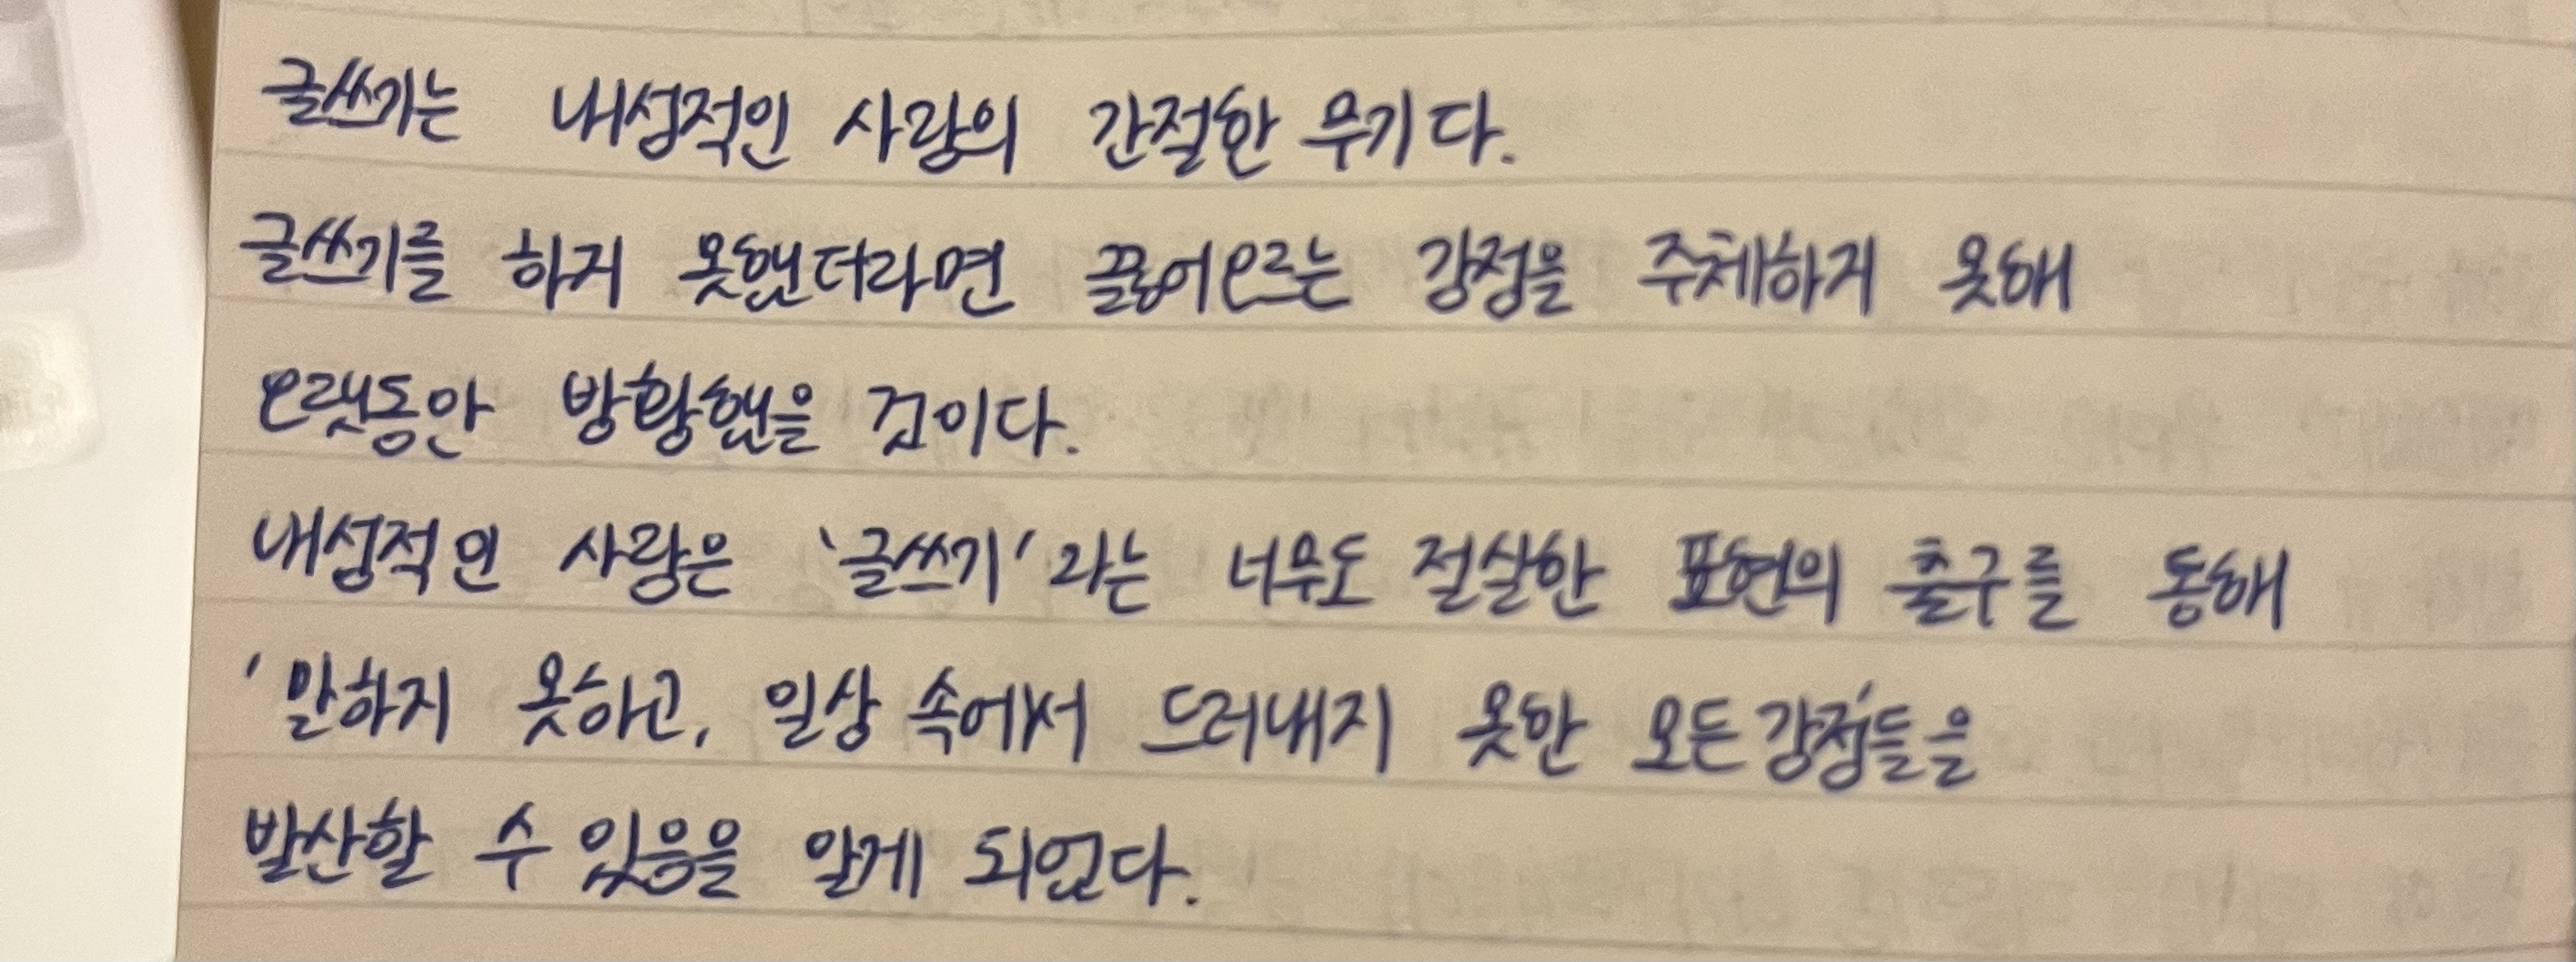 글쓰기는 내성적인 사람의 간절한 무기다.
글쓰기를 하지 못했더라면 끓어오르는 감정을 주체하지 못해
오랫동안 방황했을 것이다.
내성적인 사람은 '글쓰기'라는 너무도 절실한 표현의 출구를 통해
'말하지 못하고, 일상 속에서 드러내지 못한 모든 감정'들을
발산할 수 있음을 알게 되었다.